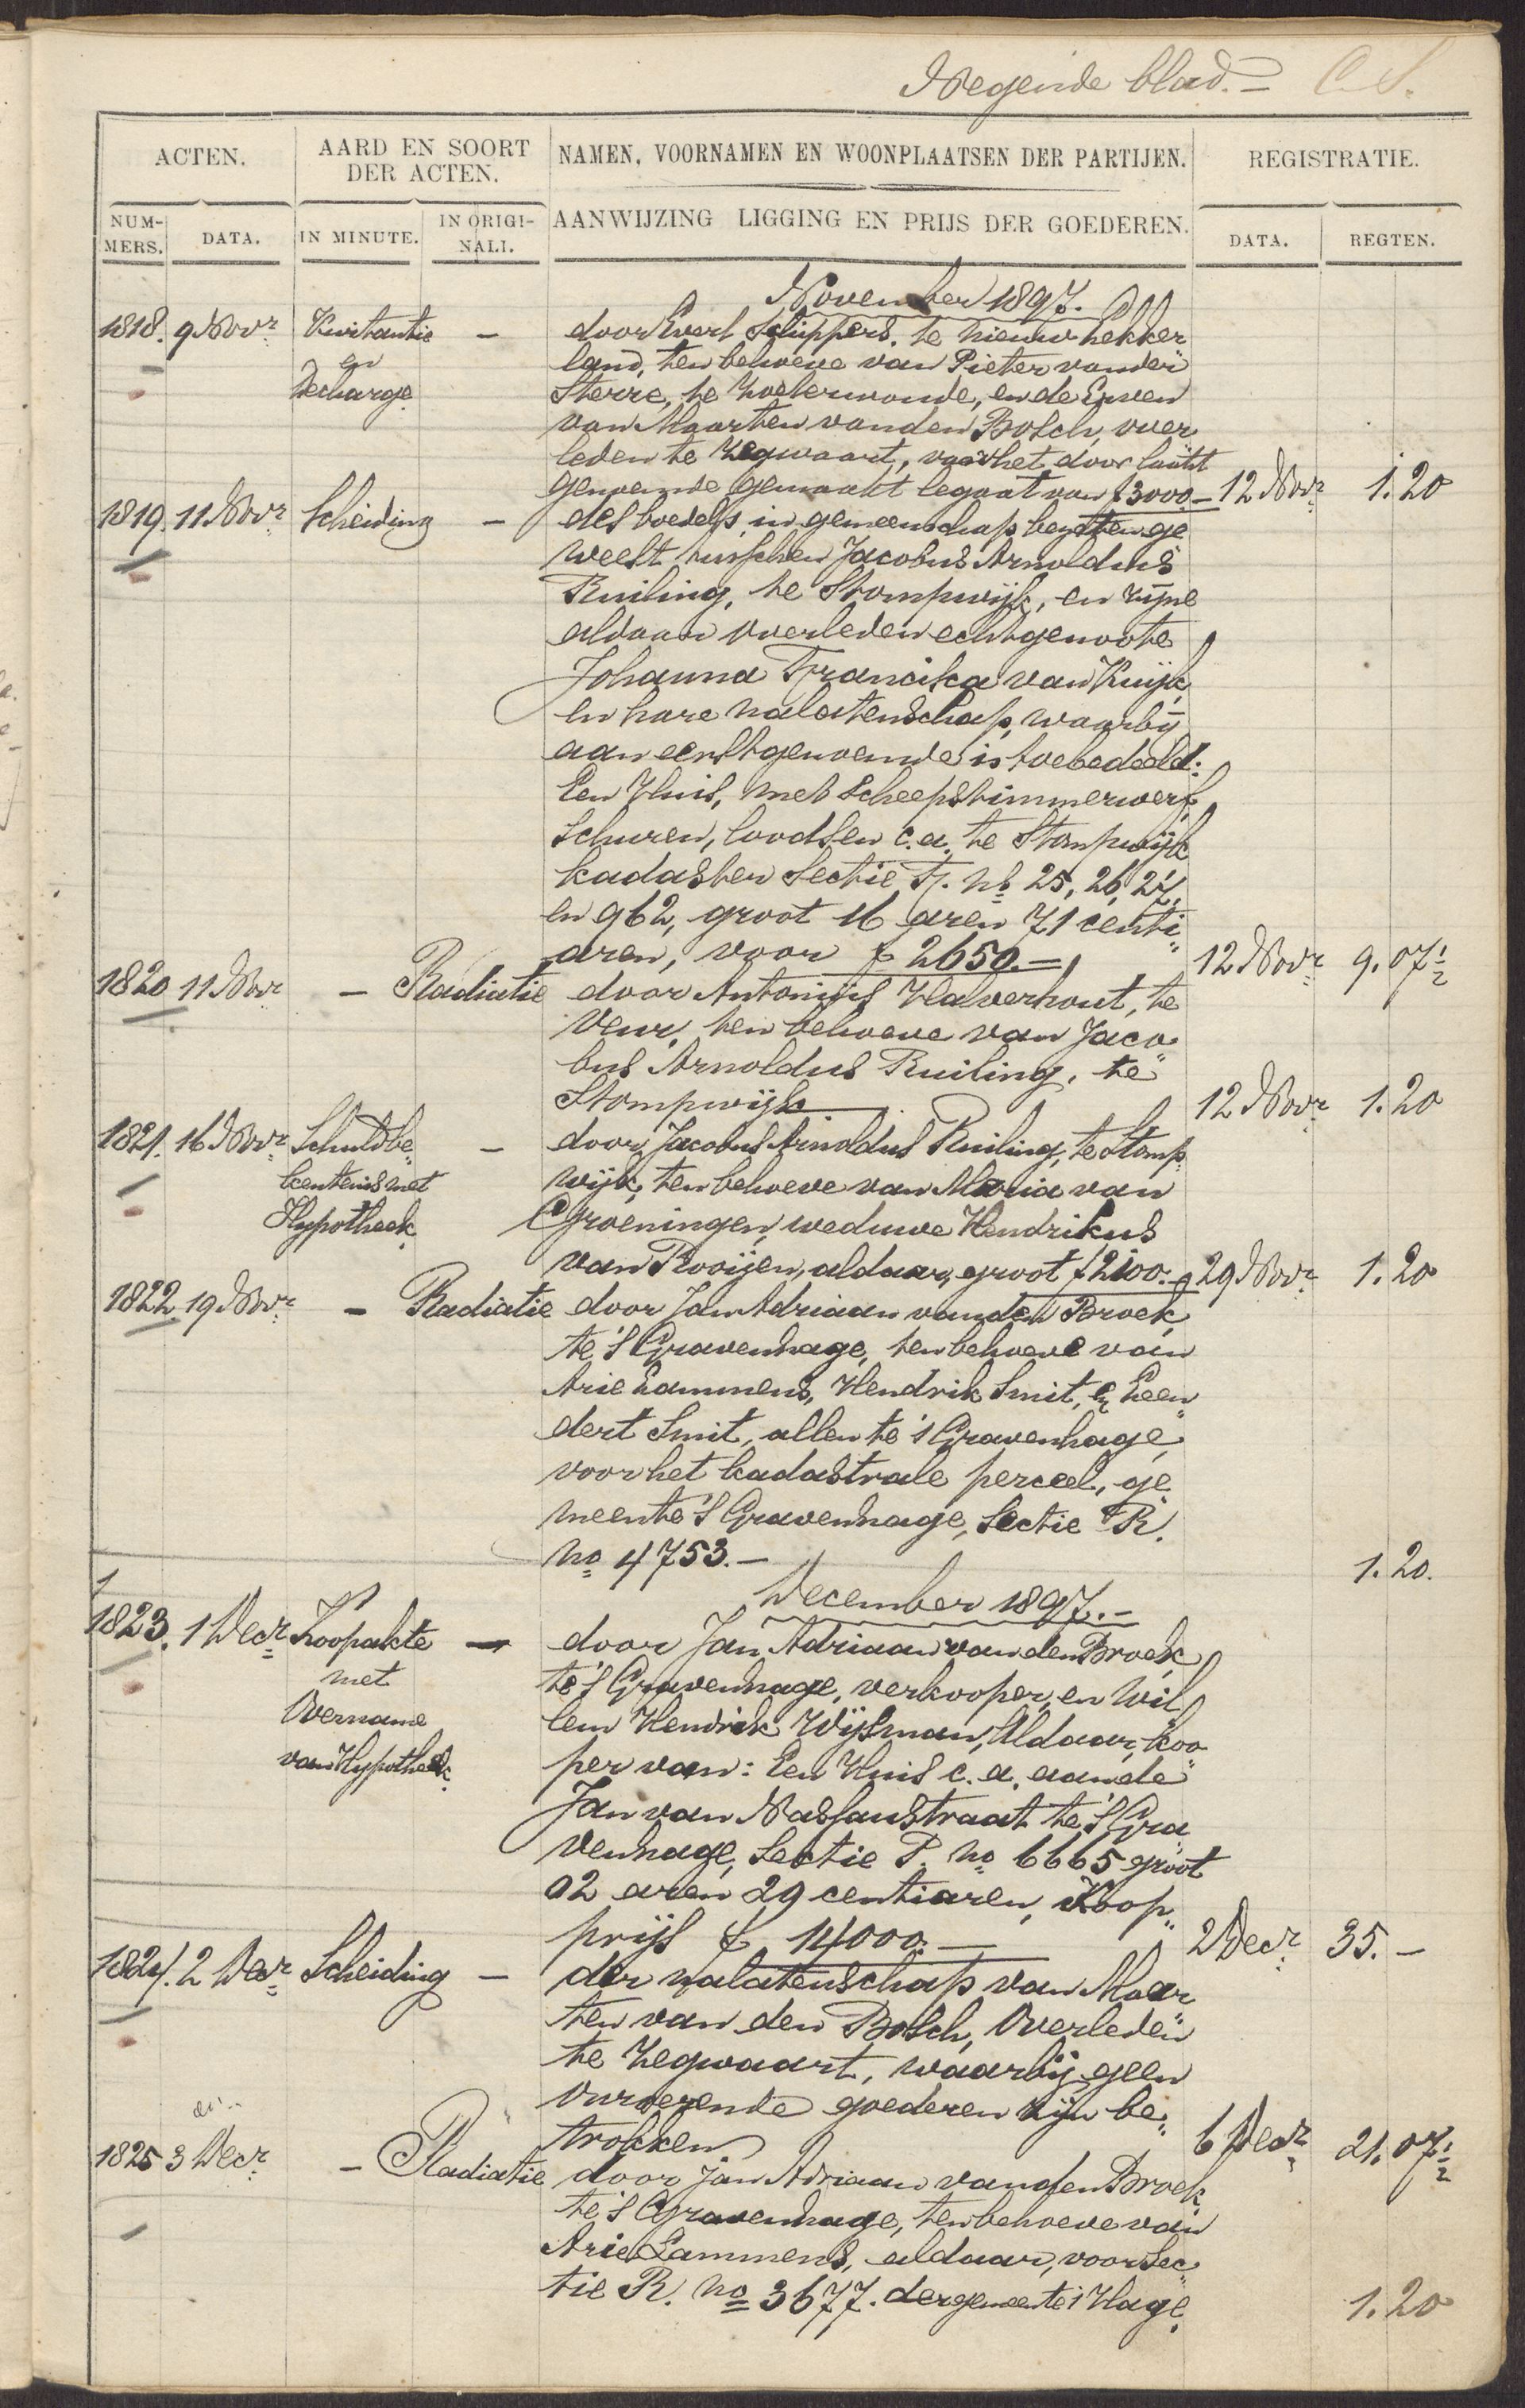 Negende blad. – C.S.
ACTEN. AARD EN SOORT DER ACTEN. NAMEN, VOORNAMEN EN WOONPLAATSEN DER PARTIJEN. REGISTRATIE.
NUMMERS. DATA. IN MINUTE. IN ORIGINALI. AANWIJZING LIGGING EN PRIJS DER GOEDEREN. DATA. REGTEN.
November 1897.
1818. 9 Novr Kwitantie – door Evert Schippers, te Nieuw Lekker
en land, ten behoeve van Pieter van der
decharge Sterre, te Zoeterwoude, en de Erven
van Maarten van den Bosch, over
leden te Zegwaart, voor het door laatst
genoemde gemaakt legaat van f 3000.– 12 Novr 1.20
1819. 11 Novr Scheiding – des boedels in gemeenschap bezeten ge
weest tusschen Jacobus Arnoldus
Ruiling, te Stompwijk, en zijne
aldaar overleden echtgenoote
Johanna Francisca van Kuijk,
en hare nalatenschap, waarbij
aan eerstgenoemde is toebedeeld:
Een Huis, met Scheepstimmerwerf,
Schuren, loodsen c.a. te Stompwijk
kadaster Sectie F. no 25, 26, 27,
en 962, groot 16 aren 71 centi„
aren, voor f 2650.– 12 Novr 9.07½
1820 11 Novr – Radiatie door Antonius Halverhout, te
Veur, ten behoeve van Jaco„
bus Arnoldus Ruiling, te
Stompwijk 12 Novr 1.20
1821. 16 Novr Schuldbe„ – door Jacobus Arnoldus Ruiling, te Stomp„
kentenis met wijk, ten behoeve van Maria van
Hypotheek Groeningen, weduwe Hendrikus
van Rooijen, aldaar, groot f 2100.– 29 Novr 1.20
1822 19 Novr – Radiatie door Jan Adriaan van den Broek,
te 's Gravenhage, ten behoeve van
Arie Lammens, Hendrik Smit, en Leen„
dert Smit, allen te 's Gravenhage,
voor het kadastrale perceel, ge„
meente 's Gravenhage, Sectie R.
no 4753.– 1.20.
December 1897.–
1823. 1 Decr Koopakte – door Jan Adriaan van den Broek,
met te 's Gravenhage, verkooper, en Wil
Overname lem Hendrik Wijsman, Aldaar, koo„
van Hypotheek per van: Een Huis c.a. aan de
Jan van Nassaustraat te 's Gra„
venhage, Sectie P. no 6665 groot
02 aren 29 centiaren, Koop„
prijs f 14000.– 2 Decr 35.–
1824. 2 Decr Scheiding – der nalatenschap van Maar„
ten van den Bosch, Overleden
te Zegwaart, waarbij geen
onroerende goederen zijn be„
trokken 6 Decr 21.07½
1825 3 Decr – Radiatie door Jan Adriaan van den Broek,
te 's Gravenhage, ten behoeve van
Arie Lammens, aldaar, voor Sec„
tie R. no 3677. der gemeente 's Hage. 1.20